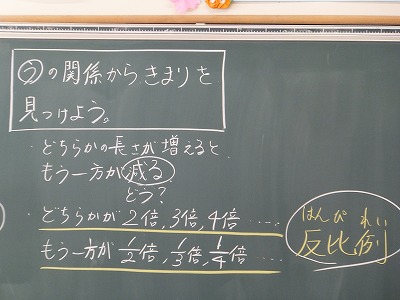 ㋒の関係からきまりを
見つけよう。
・どちらかの長さが増えると、
もう一方が減る
どう?
・どちらかが2倍,3倍,4倍……
もう一方が1/2倍,1/3倍,1/4倍……
はんぴれい
反比例